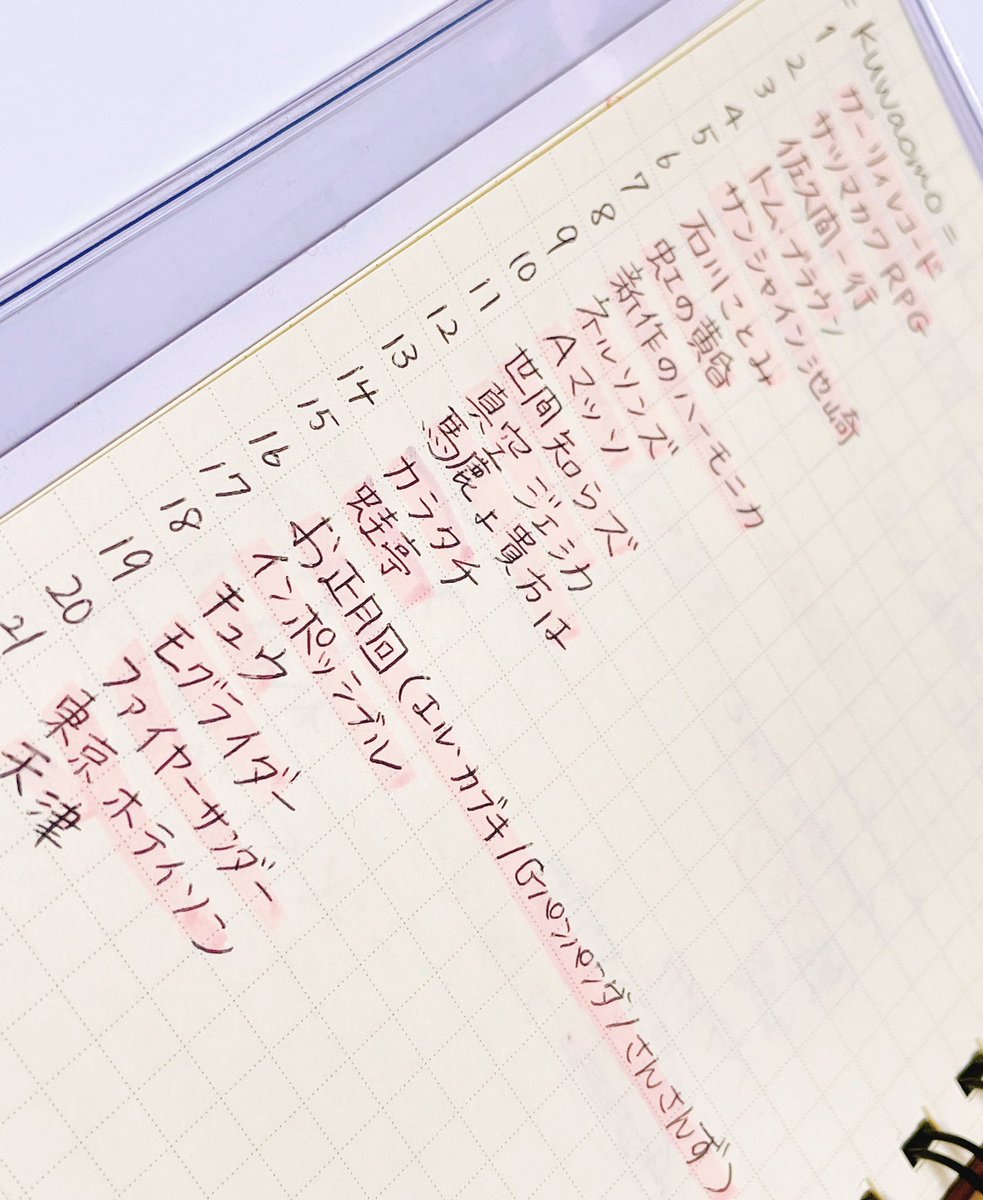 = Kuwaomo =
1 ケーリィレコード
2 サツマカワRPG
3 佐久間一行
4 トム・ブラウン
5 サンシャイン池崎
6 石川ことみ
7 虹の黄昏
8 新作のハーモニカ
9 ネルソンズ
10 Aマッソ
11 世間知らズ
12 真空ジェシカ
13 馬鹿よ貴方は
14 カラタチ
15 蛙亭
16 お正月回(エル・カブキ/Gパンパンダ/さんさんず)
17 インポッシブル
18 キュウ
19 モグライダー
20 ファイヤーサンダー
21 東京ホテイソン
天津